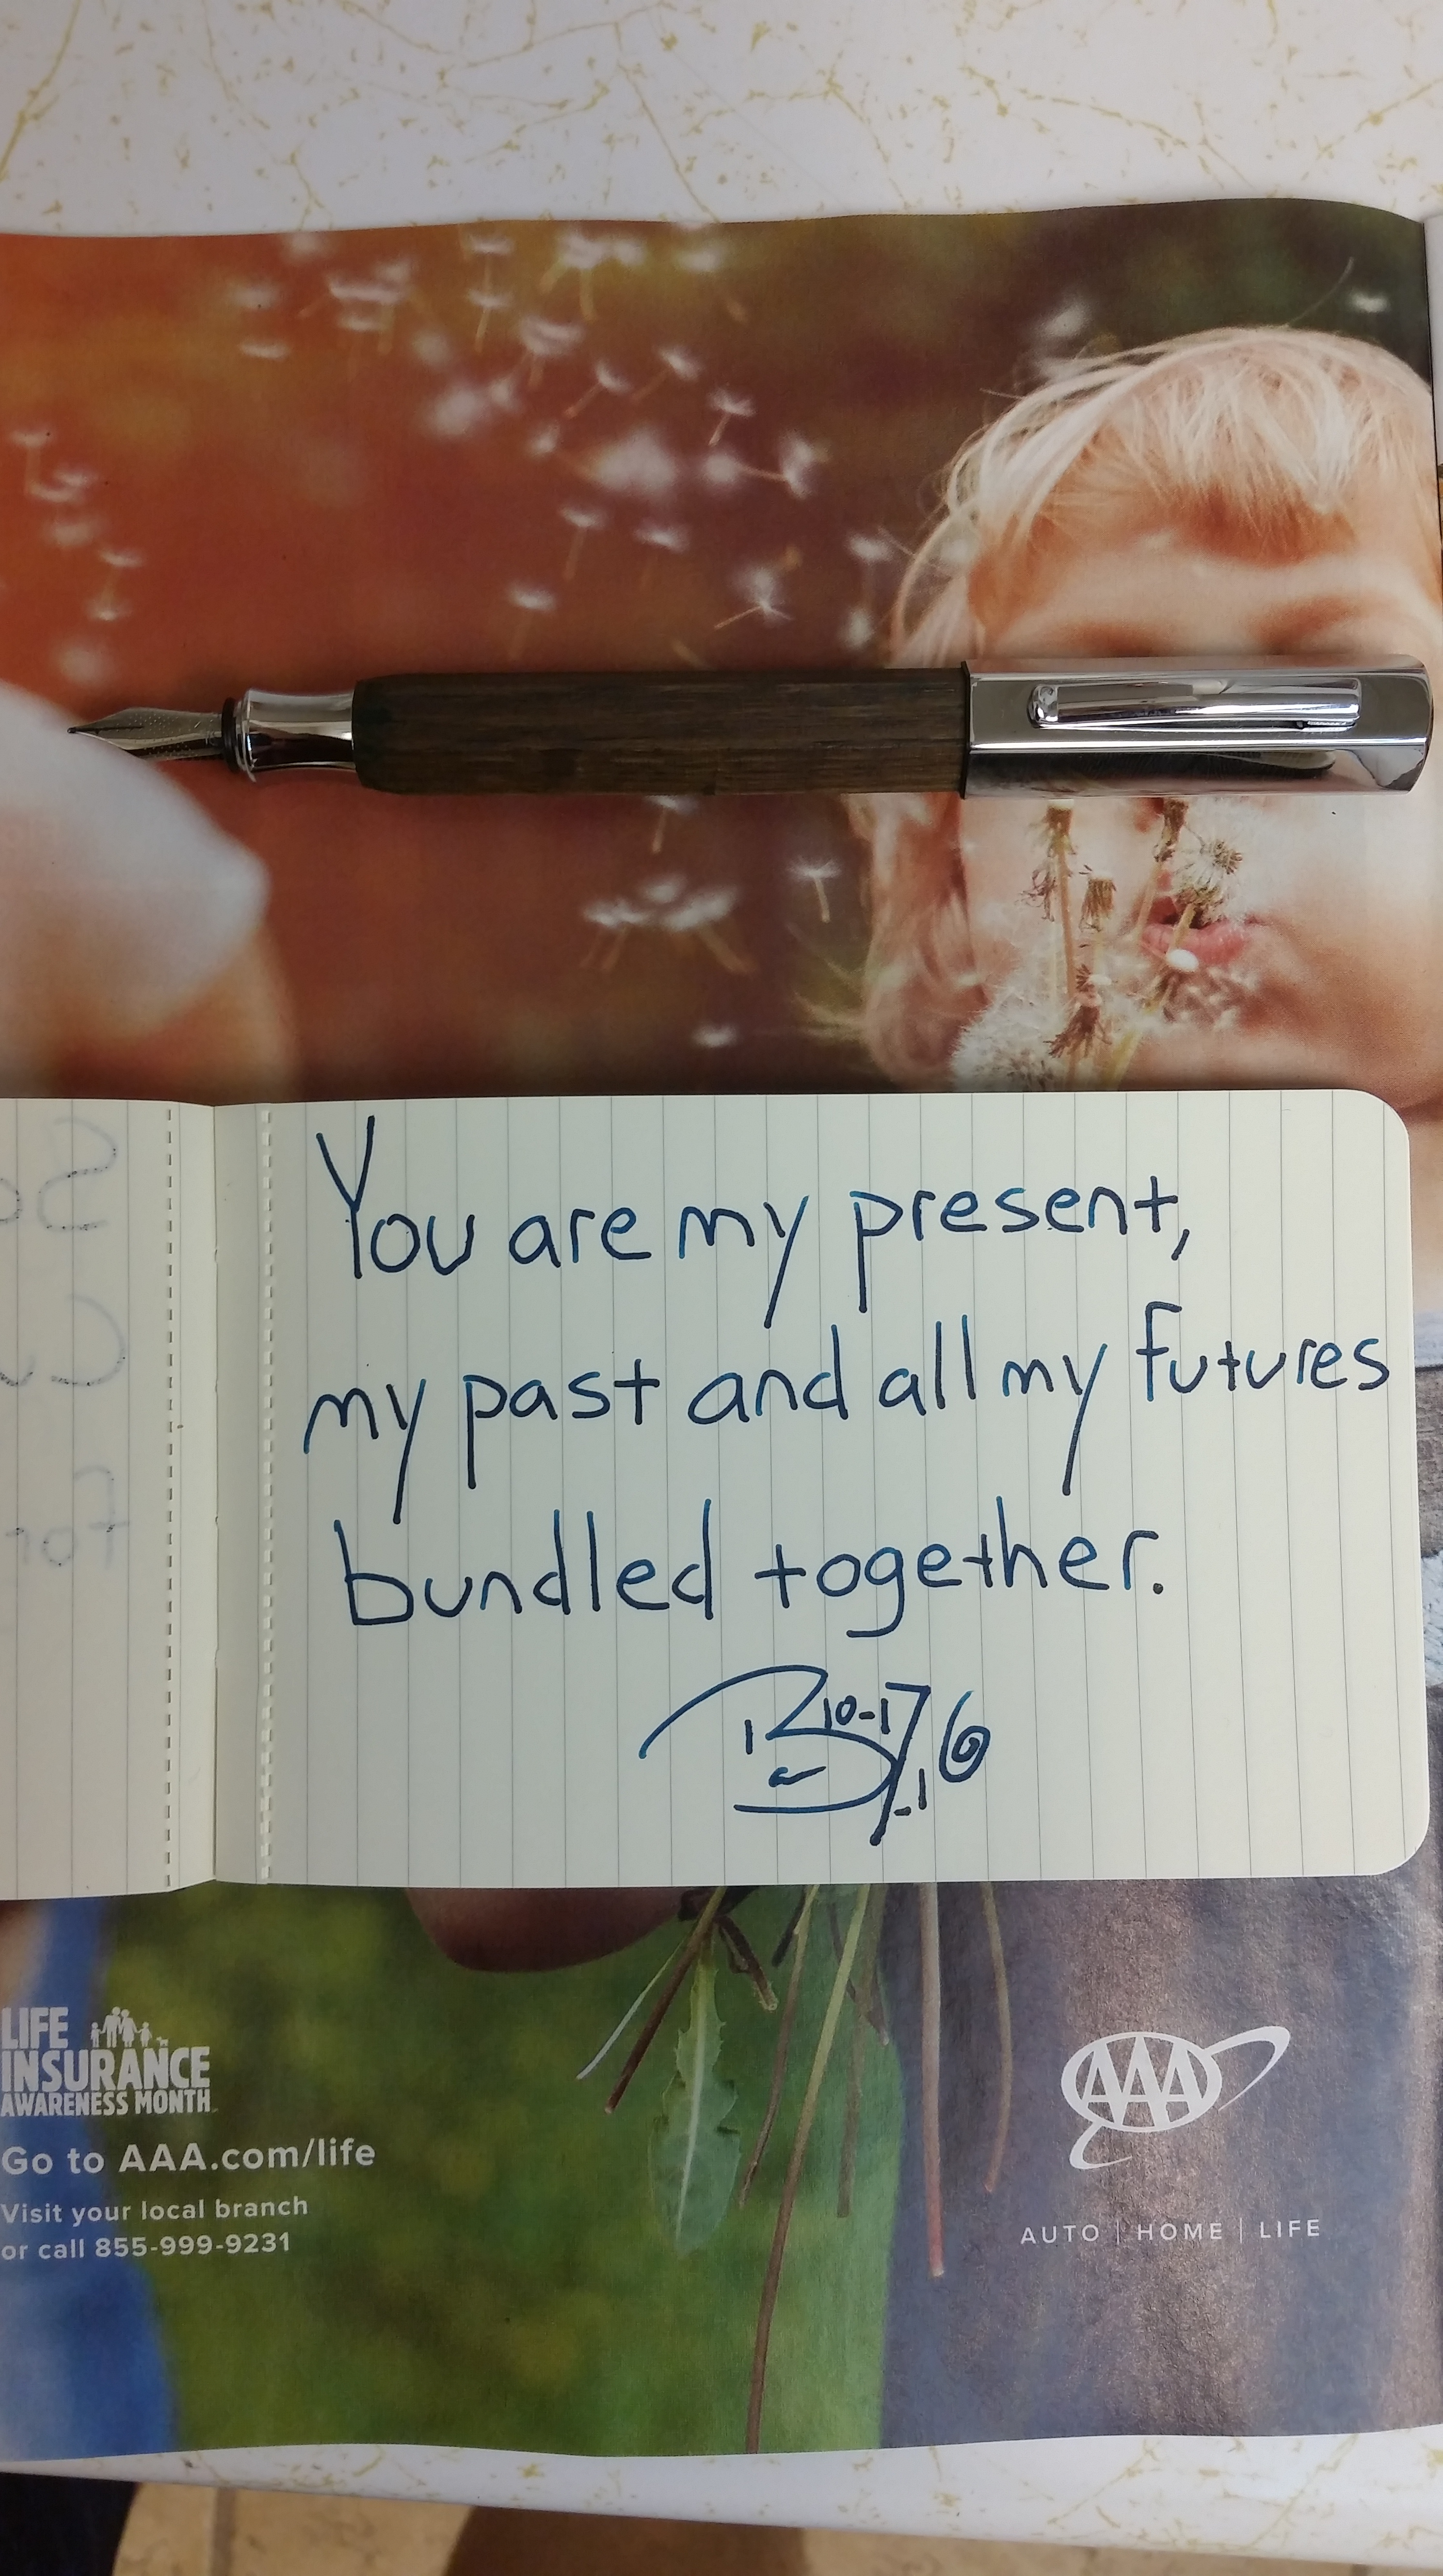 You are my present,
my past and all my futures
bundled together.
10-17-16
LIFE
INSURANCE
AWARENESS MONTH
Go to AAA.com/life
Visit your local branch
or call 855-999-9231
AAA
AUTO | HOME | LIFE